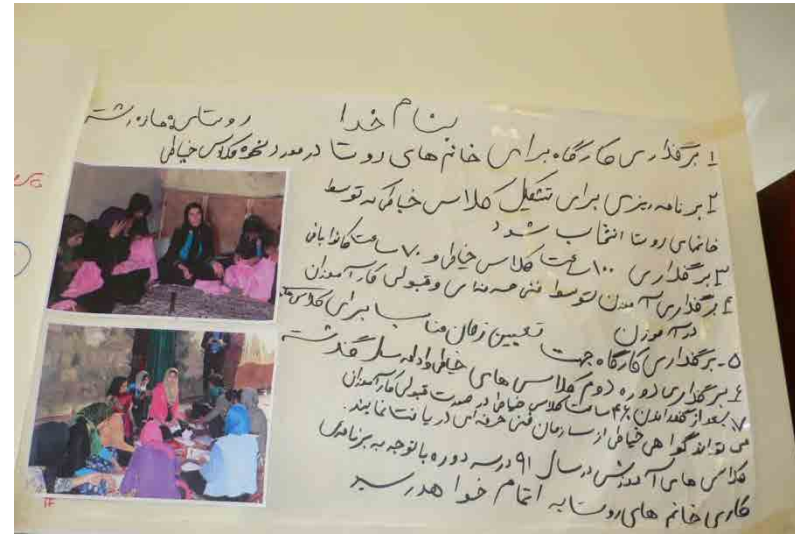 بنام خدا
روستای
۱ برگذاری کارگاه برای خانم های روستا در مورد نحوه کلاس خیاطی
۲ برنامه ریزی برای تشکیل کلاس خیاطی که توسط
خانمهای روستا انتخاب شود
۳ برگذاری ۱۰۰ ساعت کلاس خیاطی و ۷۰ ساعت
۴ برگذاری آزمون توسط فنی و قبولی کارآموزان
در آزمون
۵- برگذاری کارگاه جهت تعیین زمان مناسب برای کلاس
۶ برگذاری دوره دوم کلاس های خیاطی و ادامه سال گذشته
۷ بعد از گذراندن ۴۶ ساعت کلاس خیاطی در صورت قبولی کارآموزان
می تواند گواهی خیاطی از سازمان فنی حرفه ای دریافت نمایند.
کلاس های آموزش در سال ۹۱ در سه دوره با توجه به برنامه
کاری خانم های روستا به اتمام خواهد رسید
TF